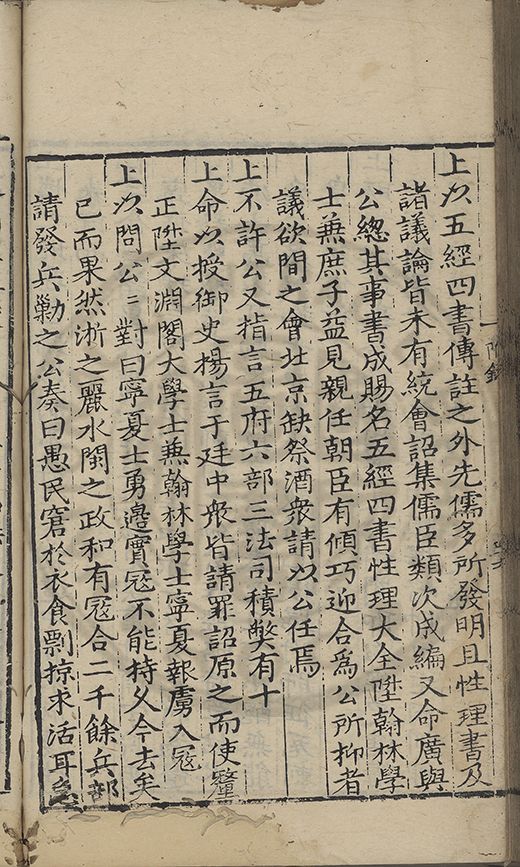 上以五經四書傳註之外先儒多所發明且性理書及
諸議論皆未有統會詔集儒臣類次成編又命廣與
公總其事書成賜名五經四書性理大全陞翰林學
士兼庶子益見親任朝臣有傾巧迎合為公所抑者
議欲間之會北京缺祭酒衆請以公任焉
上不許公又指言五府六部三法司積獘有十
上命以授御史楊言于廷中衆皆請罪詔原之而使釐
正陞文淵閣大學士兼翰林學士寧夏報虜入寇
上以問公〻對曰寧夏士勇邊實寇不能持久今去矣
已而果然浙之麗水閩之政和有寇合二千餘兵部
請發兵勦之公奏曰愚民窘於衣食剽掠求活耳急